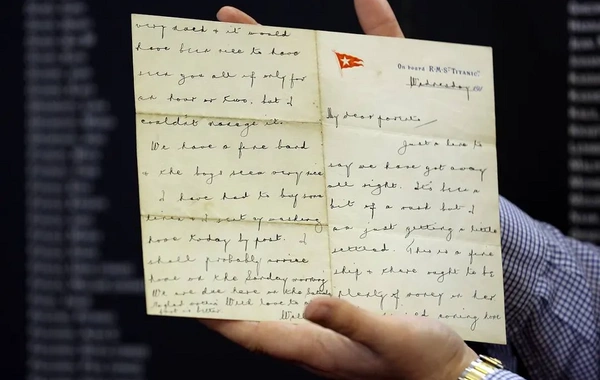 On board R.M.S. "TITANIC".
Wednesday 191
My dear parents/
Just a line to
say we have got away
all right. It's been a
bit of a rush but I
am just getting a little
settled. This is a fine
ship & there ought to be
plenty of money on her
coming home
very much & it would
have been nice to have
seen you all if only for
an hour or two, but I
couldn't manage it.
We have a fine band
& the boys seem very nice
I have had to buy some
linen & sent my washing
home today by post. I
shall probably arrive
home on the Sunday morning
We are due here on the
Glad mother's With love to
foot is better.